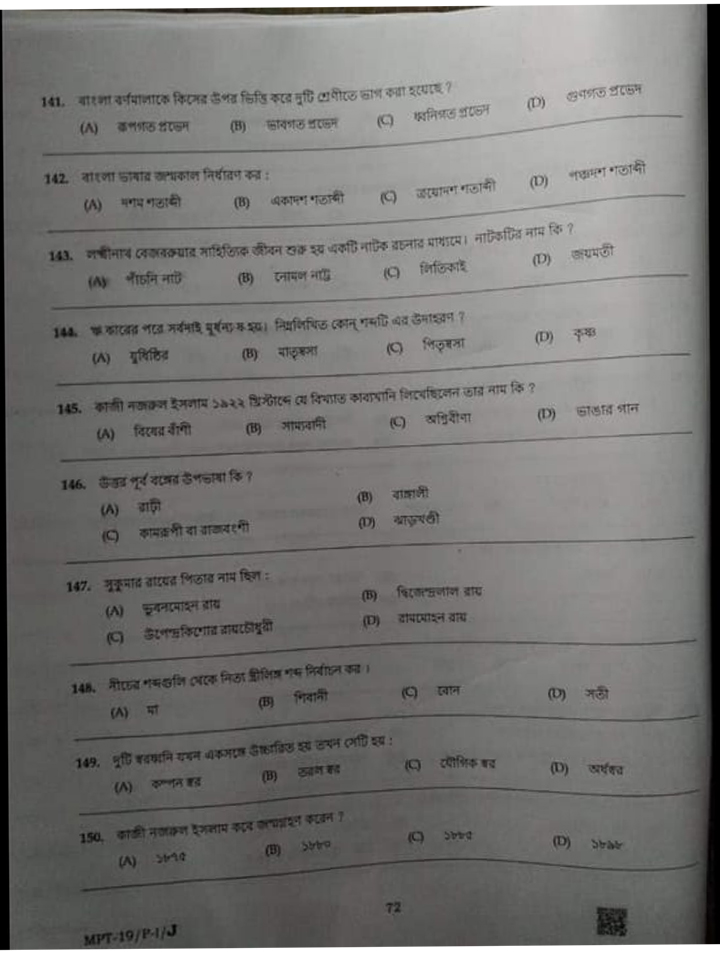 141. বাংলা বর্ণমালাকে কিসের উপর ভিত্তি করে দুটি শ্রেণীতে ভাগ করা হয়েছে ?
(A) রূপগত প্রভেদ (B) ভাবগত প্রভেদ (C) ধ্বনিগত প্রভেদ (D) গুণগত প্রভেদ
142. বাংলা ভাষার জন্মকাল নির্ধারণ কর :
(A) দশম শতাব্দী (B) একাদশ শতাব্দী (C) ত্রয়োদশ শতাব্দী (D) পঞ্চদশ শতাব্দী
143. লক্ষীনাথ বেজবরুয়ার সাহিত্যিক জীবন শুরু হয় একটি নাটক রচনার মাধ্যমে। নাটকটির নাম কি ?
(A) পাঁচনি নাট (B) নোমল নাট্ট (C) লিতিকাই (D) জয়মতী
144. ঋ কারের পরে সর্বদাই মূর্ধন্য ষ হয়। নিম্নলিখিত কোন্ শব্দটি এর উদাহরণ ?
(A) যুধিষ্ঠির (B) মাতৃষসা (C) পিতৃষসা (D) কৃষ্ণ
145. কাজী নজরুল ইসলাম ১৯২২ খ্রিস্টাব্দে যে বিখ্যাত কাব্যখানি লিখেছিলেন তার নাম কি ?
(A) বিষের বাঁশী (B) সাম্যবাদী (C) অগ্নিবীণা (D) ভাঙার গান
146. উত্তর পূর্ব বঙ্গের উপভাষা কি ?
(A) রাঢ়ী (B) বাঙ্গালী
(C) কামরূপী বা রাজবংশী (D) ঝাড়খণ্ডী
147. সুকুমার রায়ের পিতার নাম ছিল :
(A) ভুবনমোহন রায় (B) দ্বিজেন্দ্রলাল রায়
(C) উপেন্দ্রকিশোর রায়চৌধুরী (D) রামমোহন রায়
148. নীচের শব্দগুলি থেকে নিত্য স্ত্রীলিঙ্গ শব্দ নির্বাচন কর ।
(A) মা (B) শিবানী (C) বোন (D) সতী
149. দুটি স্বরধ্বনি যখন একসঙ্গে উচ্চারিত হয় তখন সেটি হয় :
(A) কম্পন স্বর (B) তরল স্বর (C) যৌগিক স্বর (D) অর্ধস্বর
150. কাজী নজরুল ইসলাম কবে জন্মগ্রহণ করেন ?
(A) ১৮৭৫ (B) ১৮৮০ (C) ১৮৮৫ (D) ১৮৯৮
72
MPT-19/P-I/J